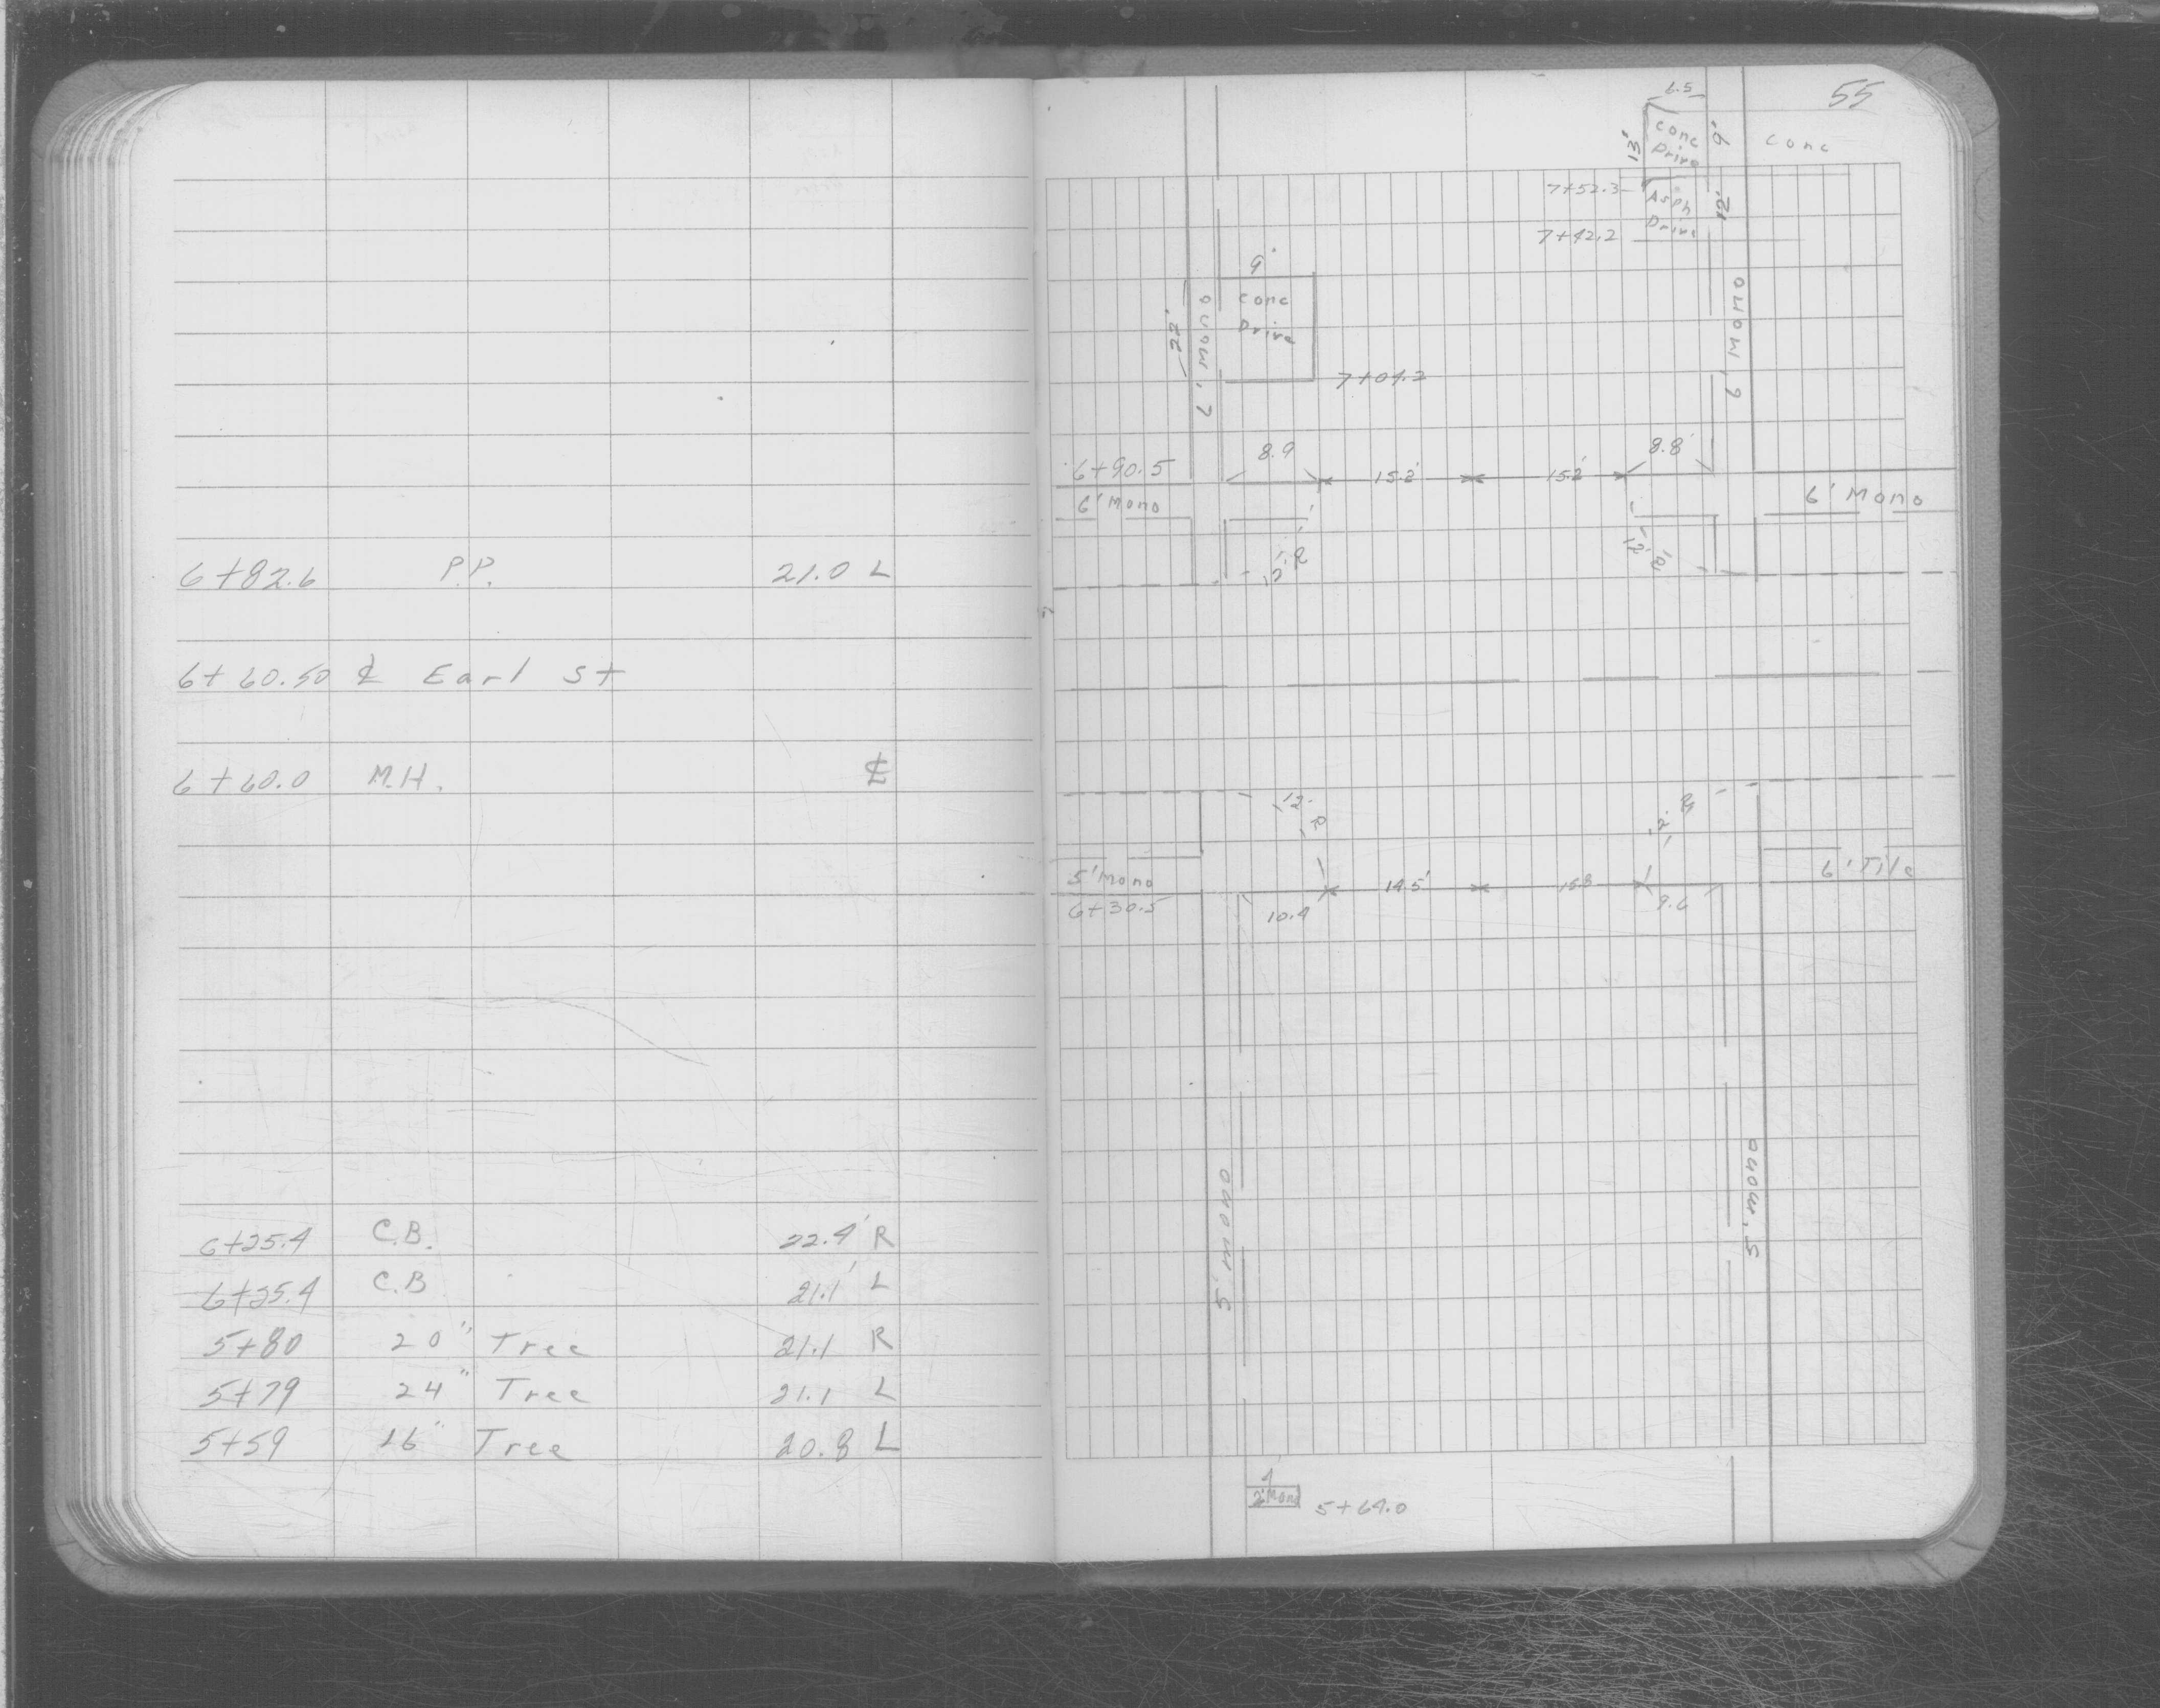 6+82.6 P.P. 21.0 L
6+60.50 ℄ Earl St
6+60.0 M.H. ℄
6+25.4 C.B. 22.4' R
6+25.4 C.B 21.1' L
5+80 20" Tree 21.1 R
5+79 24" Tree 21.1 L
5+59 16" Tree 20.8 L
55
6.5
13' Conc 9' Conc
Drive
7+52.3 Asph 12'
7+42.2 Drive
9'
22' 6' Mono Conc 6' Mono
Drive
7+04.2
6+90.5 8.9 15.2' 15.2' 8.8'
6' Mono 6' Mono
12' R 12' R
12' R 12' R
5' Mono 14.5' 15.3 6' Tile
6+30.5 10.4 9.6
5' mono 5' mono
4
2' Mono 5+64.0